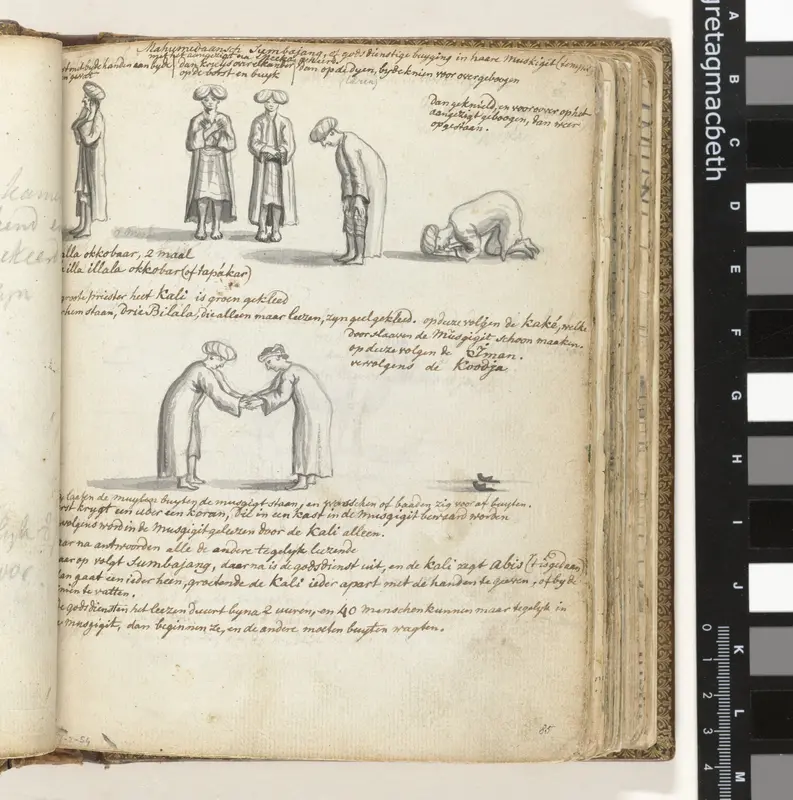 Mahumedaansch Sumbajang, of godsdienstige buyging in haare muskigit (tempel
met het aangezigt na Mecka gekeerd.
met byde handen aan byde
dan kruys over elkander
op de borst en buyk
dan op de dyen, by de knien voor over geboogen
dan geknield, en voorover op het
aangezigt geboogen, dan weer
opgestaan.
alla okkobaar, 2 maal
illa illala okkobar (of tapakar)
groote priester heet Kali is groen gekleed
hem staan, drie Bilala, die alleen maar leezen, zyn geel gekleed. op deze volgen de kaké, welke
door slaaven de Musgigit schoon maaken.
op deeze volgen de Iman.
vervolgens de Koodja
laeten de muylen buyten de musgigt staan, en wasschen of baaden zig voor af buyten.
krygt een ieder een koran, die in een kast in de Musgigit bewaard worden
volgens word in de Musgigit geleezen door de Kali alleen.
na antwoorden alle de andere tegelyk leezende
op volgt Sumbajang, daar na is de godsdienst uit, en de kali zegt abis (tis gedaan)
gaat een ieder heen, groetende de kali ieder apart met de handen te geeven, of by de
te vatten.
godsdiensten het leezen duurt byna 2 uuren, en 40 menschen kunnen maar tegelyk in
musgigit, dan beginnen ze, en de andere moeten buyten wagten.
85
gretagmacbeth
A
B
C
D
E
F
G
H
I
J
K
L
M
0
1
2
3
4